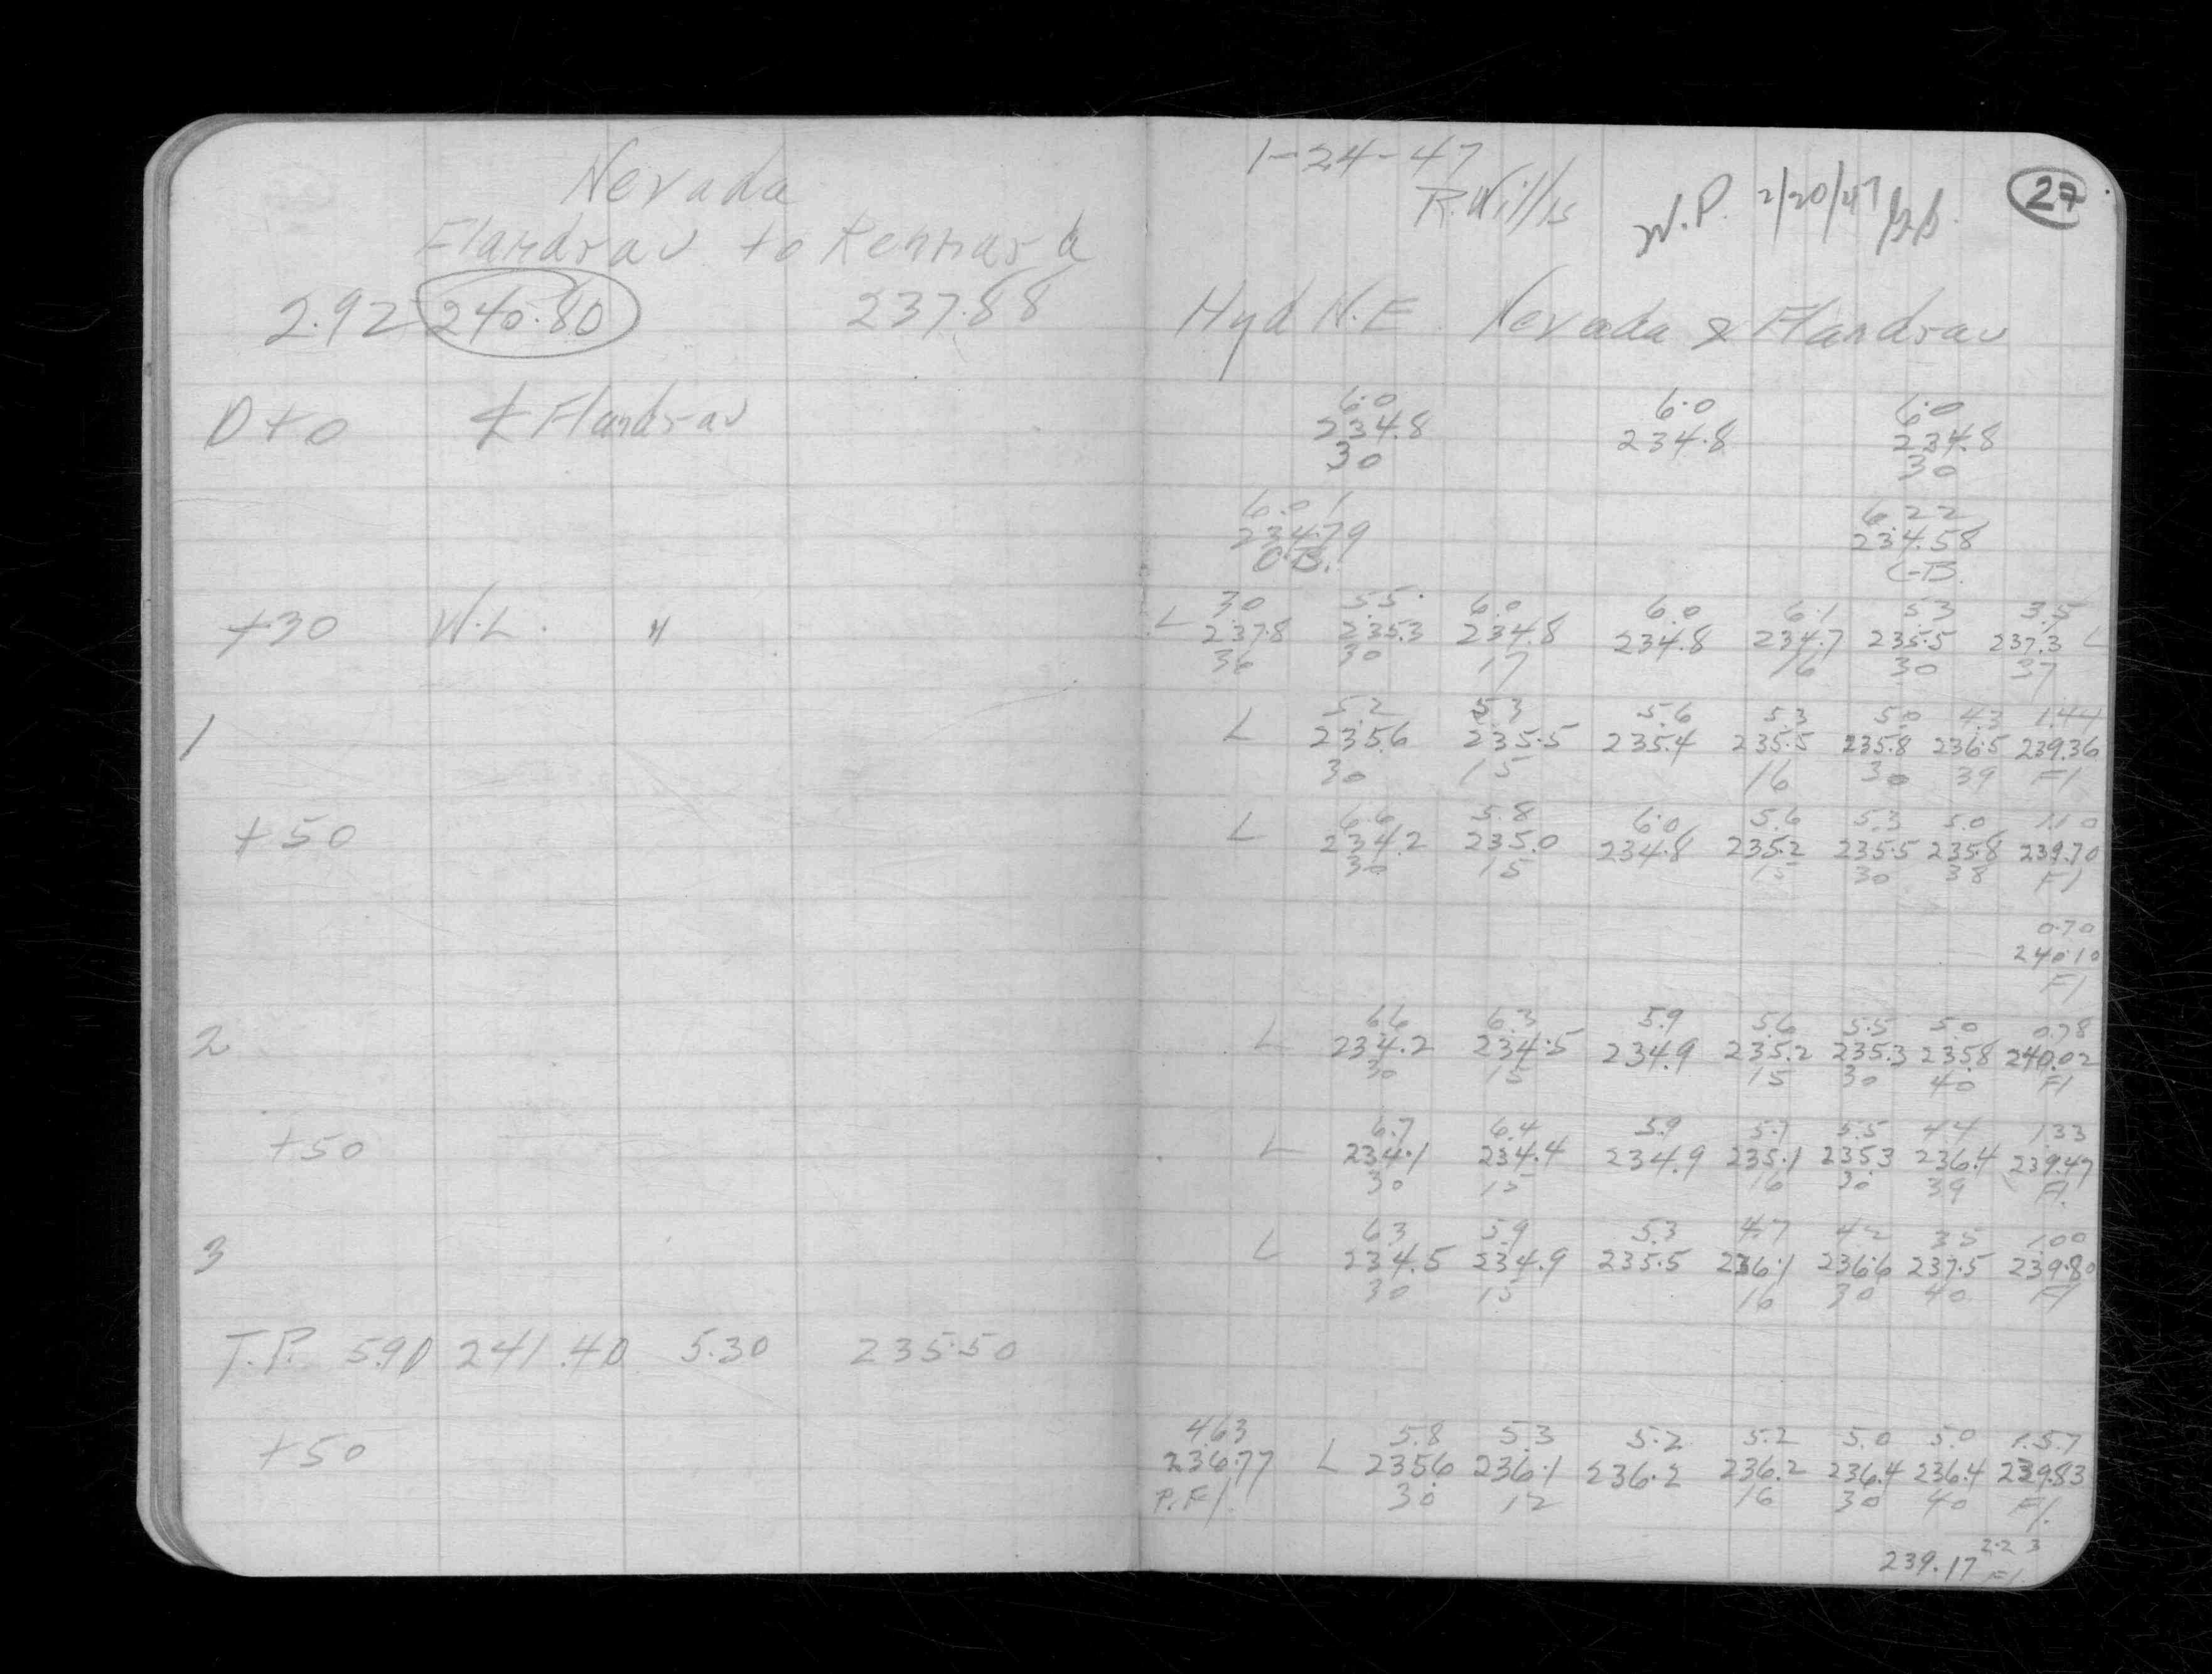 Nevada
Flandrau to Kennard
2.92 240.80 237.88
0+0 ⅊ Flandrau
+30 W.L. "
1
+50
2
+50
3
T.P. 5.90 241.40 5.30 235.50
+50
1-24-47
R. Willis W.P. 2/20/47 27
Hyd N.E. Nevada & Flandrau
6.0 6.0 6.0
234.8 234.8 234.8
30 30
6.01 6.22
234.79 234.58
C.B. C-B.
30 5.5 6.0 6.0 6.1 5.3 3.5
L 237.8 235.3 234.8 234.8 234.7 235.5 237.3 L
36 30 17 16 30 37
5.2 5.3 5.6 5.3 5.0 4.3 1.44
L 235.6 235.5 235.4 235.5 235.8 236.5 239.36
30 15 16 30 39 Fl
6.6 5.8 6.0 5.6 5.3 5.0 1.10
L 234.2 235.0 234.8 235.2 235.5 235.8 239.70
30 15 15 30 38 Fl
0.70
240.10
Fl
6.6 6.3 5.9 5.6 5.5 5.0 0.78
L 234.2 234.5 234.9 235.2 235.3 235.8 240.02
30 15 15 30 40 Fl
6.7 6.4 5.9 5.7 5.5 4.4 1.33
L 234.1 234.4 234.9 235.1 235.3 236.4 239.47
30 15 16 30 39 Fl.
6.3 5.9 5.3 4.7 4.2 3.5 1.00
L 234.5 234.9 235.5 236.1 236.6 237.5 239.80
30 15 16 30 40 Fl
4.63 5.8 5.3 5.2 5.2 5.0 5.0 1.57
236.77 L 235.6 236.1 236.2 236.2 236.4 236.4 239.83
P. Fl. 30 12 16 30 40 Fl.
2.23
239.17 Fl